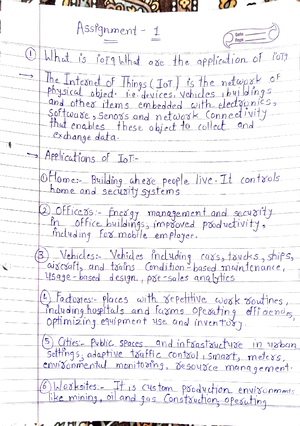 Assignment - 1
Date
Page
① What is IOT? What are the application of IOT?
→ The Internet of Things (IoT) is the network of
physical object. i.e. devices, vehicles, buildings
and other items embedded with electronics,
software, senors and network Connectivity
that enables these object to collect and
exchange data.
→ Applications of IoT:-
① Home:- Building where people live. It controls
home and security systems
② Officers:- Energy management and security
in office buildings, improved productivity,
including for mobile employee.
③ Vehicles:- Vehicles including cars, trucks, ships,
aircraft, and trains Condition-based maintenance,
Usage-based design, pre-sales analytics
④ Factories:- places with repetitive work routines,
including hospitals and farms operating efficiency,
optimizing equipment use and inventory.
⑤ Cities:- Public spaces and infrastructure in urban
settings, adaptive traffic control, smart, meters,
environmental monitoring, resource management.
⑥ Worksites:- It is custom production environments
like mining, oil and gas Construction, operating